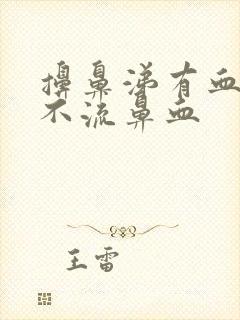 擤鼻涕有血
不流鼻血
王雷